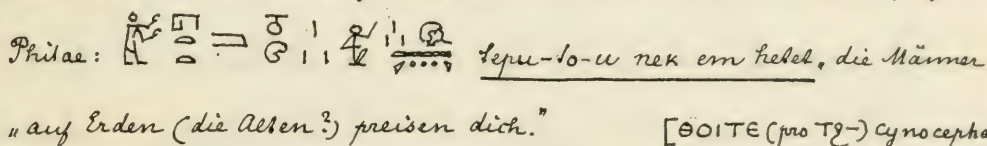 Philae: tepu-to-u nek em hetet, die Männer
„auf Erden (die Alten?) preisen dich.“ [ΘOITE (pro Tϩ-) Cynocepha